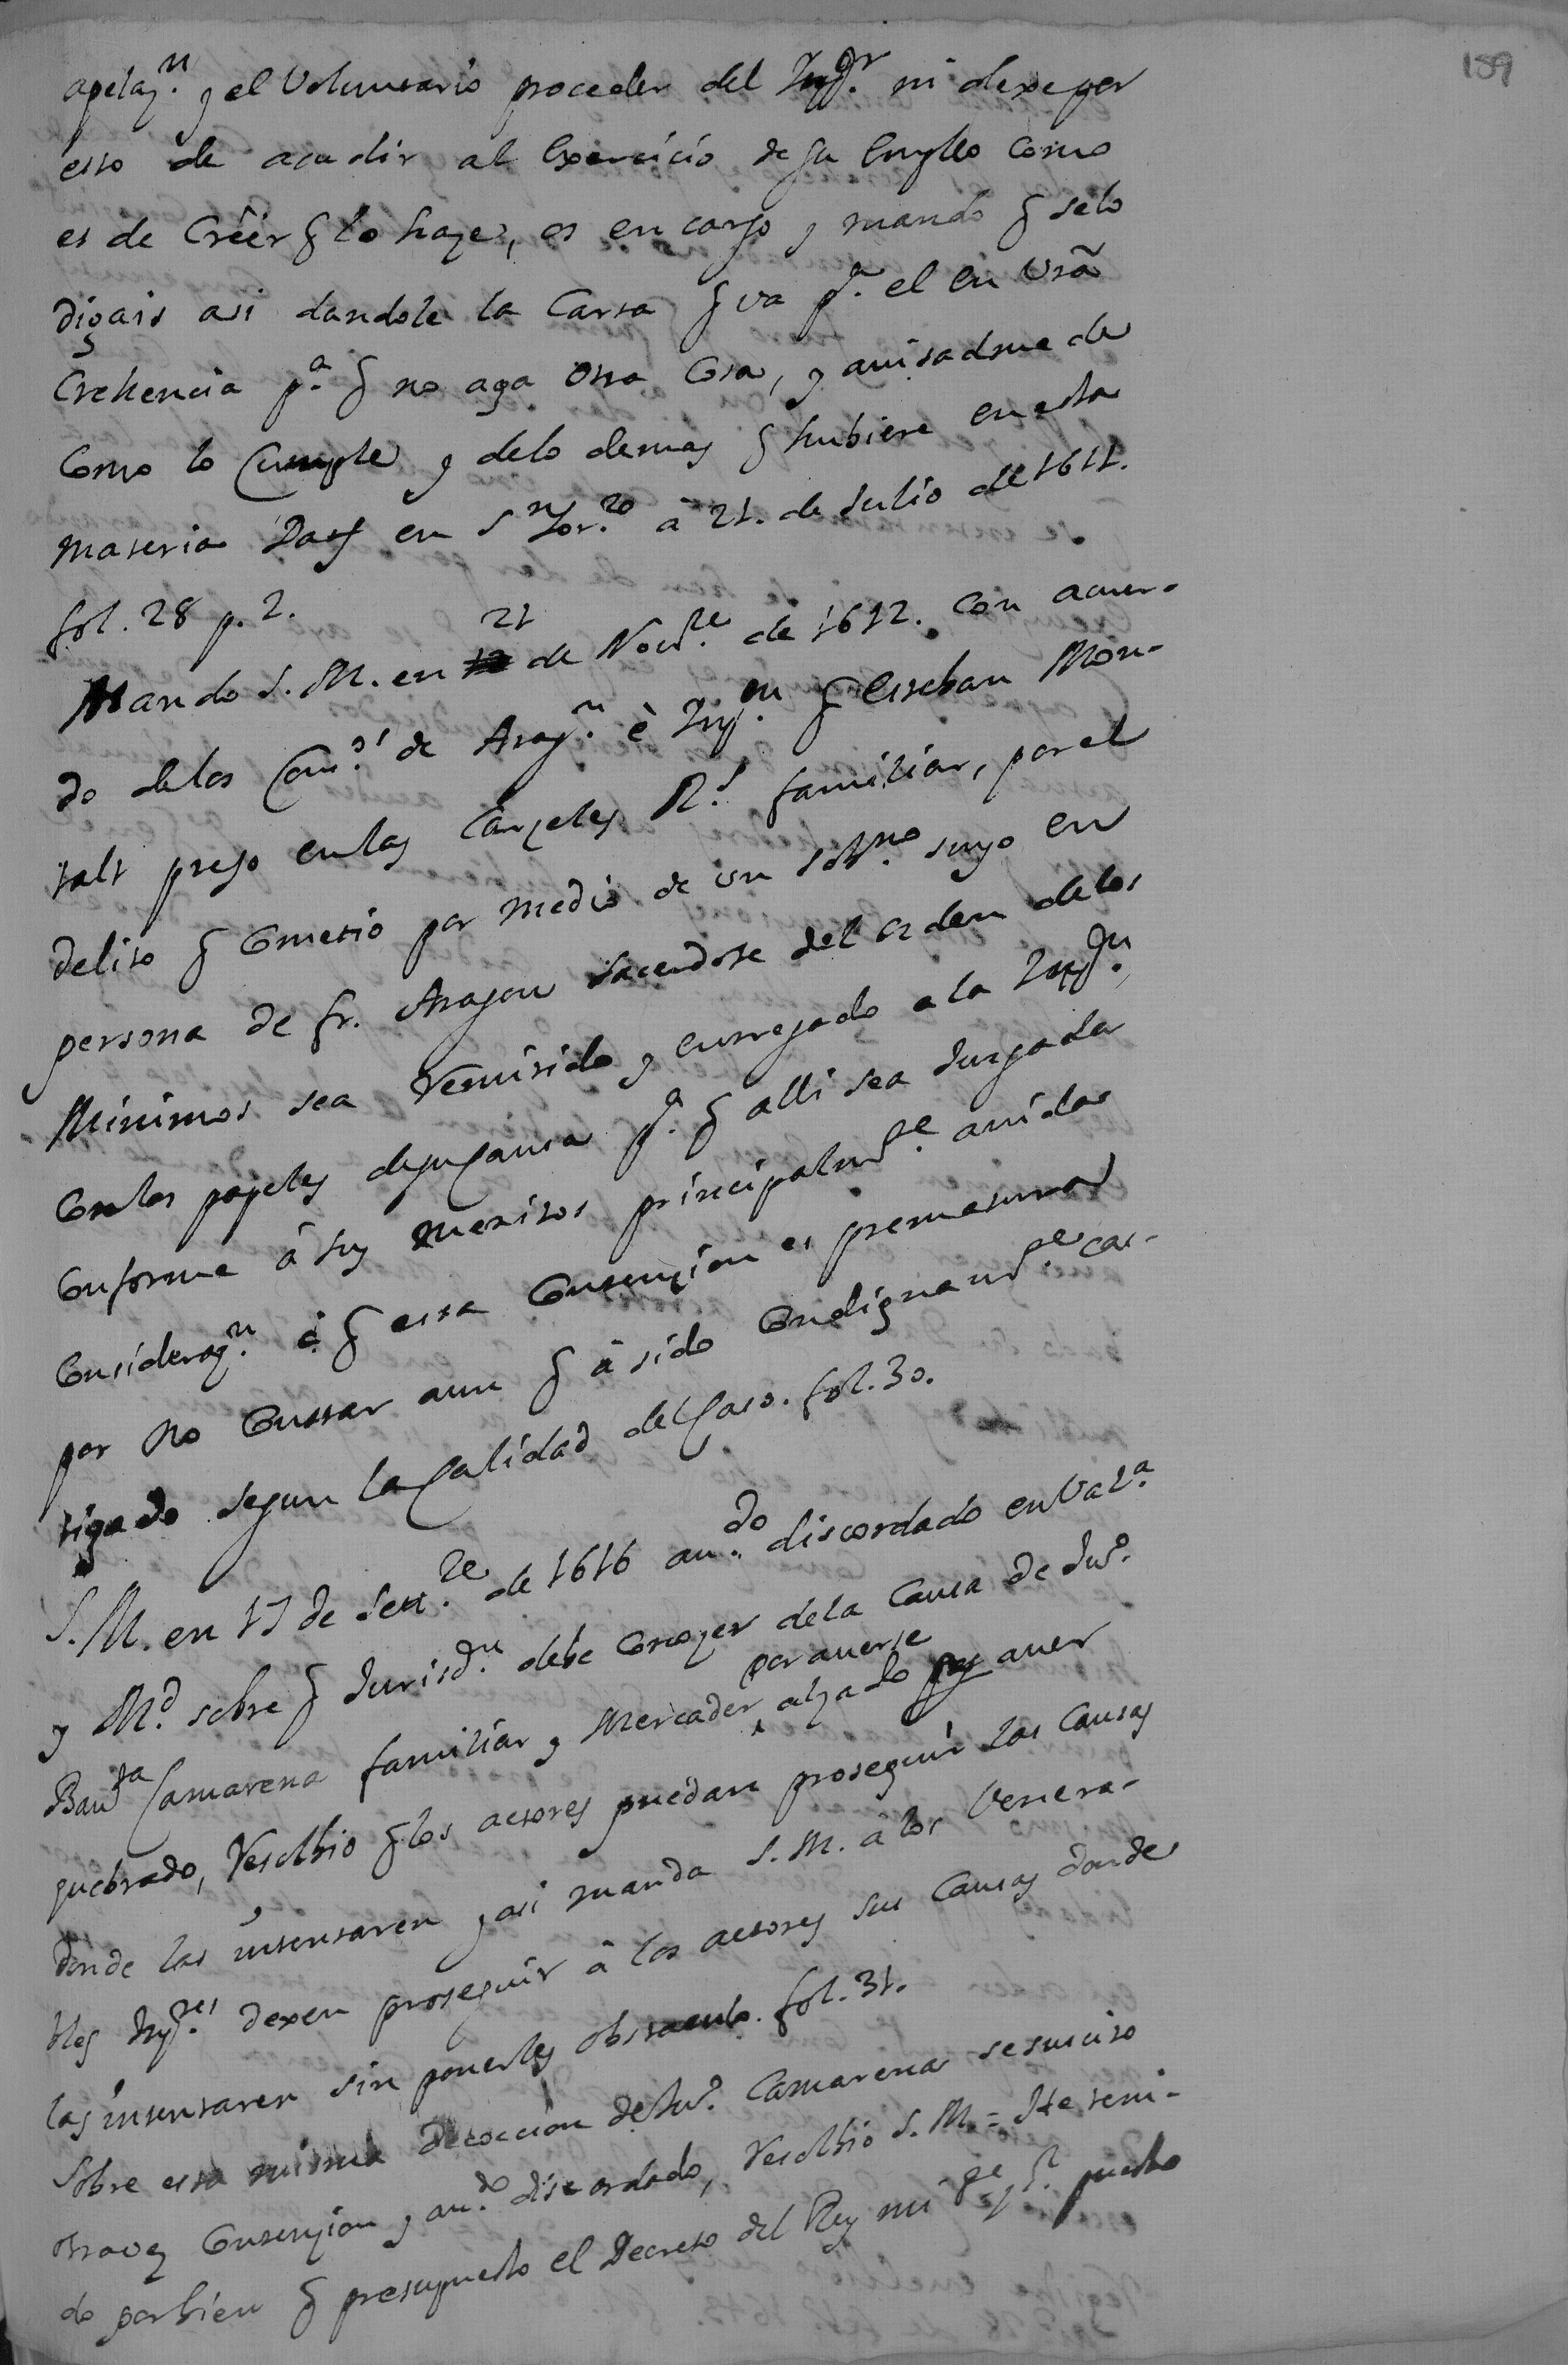 189
apelaz.n y el Voluntario proceder del Inqq.r ni dexe por
esto de acudir al Exercicio de su Empleo como
es de Créer q lo haze, os encargo y mando q selo
digais asi dandole la Carta q va p.a el en vrã
Crehencia p.a q no aga otra Cosa, y avisadme de
Como lo Cumple y delo demas q hubiere en esta
materia Dat en S.n Lor.zo à 21. de Julio de 1611.
fol. 28 p. 2.
Mando S. M. en 21 de Nov.re de 1612. con acuer-
do delos Cons.os de Arag.n è Inq.on q Esteban Mon-
talt preso enlas Carzeles R.s familiar, por el
delito q Cometio por medio de un Sob.no suyo en
persona de fr. Aragon Sacerdote del orden delos
Minimos sea Remitido y entregado a la Inqq.on
Conlos papeles desu Causa p.a q alli sea Juzgada
Conforme á sus meritos principalm.te avida
Consideraz.n à q esta Contenzion es prematura
por no Constar aun q à sido Condignam.te cas-
tigado segun la Calidad del Caso. fol. 30.
S. M. en 17 de Sett.re de 1616 av.do discordado en Val.a
y M.d sobre q Jurisd.on debe Conozer dela Causa de Ju.o
Baut.ta Camarena familiar y Mercader por averse alzado por aver
quebrado, Resolbio q los actores puedan proseguir las Causas
donde las intentaren y asi manda S. M. à los Venera-
bles Inq.res dexen proseguir à los actores sus Causas donde
las intentaren sin ponerles obstaculo. fol. 31.
Sobre esta misma decoccion de Ju.o Camarena se suscito
otra vez Contenzion y av.do discordado, Resolbio S. M. = He teni-
do por bien q presupuesto el Decreto del Rey mi P.e y S.r puesto